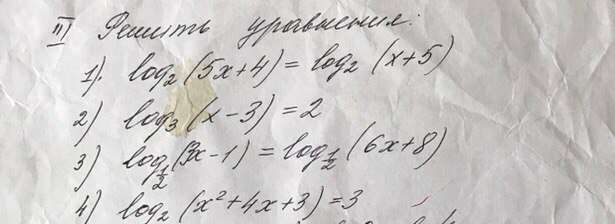 II) Решить уравнения:
1). log₂ (5x+4) = log₂ (x+5)
2) log₃ (x-3) = 2
3) log_{1/2} (3x-1) = log_{1/2} (6x+8)
4) log₂ (x²+4x+3) = 3